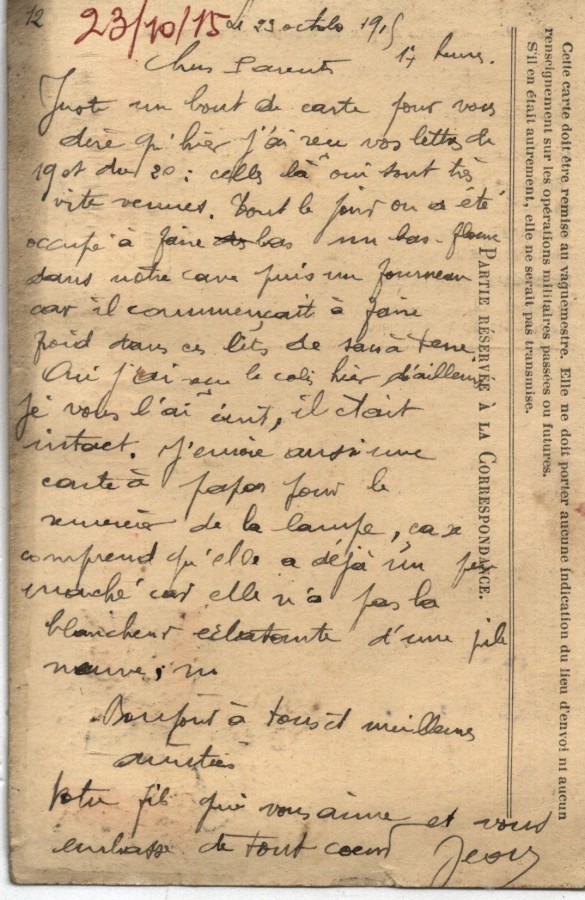 12
23/10/15
le 23 octobre 1915
17 heures.
Chers Parents
Juste un bout de carte pour vous
dire qu'hier j'ai reçu vos lettres de
19 et du 20 : celles là oui sont très
vite venues. Tout le jour on a été
occupé à faire un bas-flanc
dans notre cave puis un fourneau
car il commençait à faire
froid dans ces lits de
Oui j'ai reçu le colis hier d'ailleurs
je vous l'ai écrit, il était
intact. J'envoie aussi une
carte à papa pour le
remercier de la lampe, ça se
comprend qu'elle a déjà un peu
marché car elle n'a pas la
blancheur éclatante d'une pile
neuve,
Bonjour à tous et meilleures
amitiés
Votre fils qui vous aime et vous
embrasse de tout coeur
PARTIE RÉSERVÉE À LA CORRESPONDANCE.
Cette carte doit être remise au vaguemestre. Elle ne doit porter aucune indication du lieu d'envoi ni aucun
renseignement sur les opérations militaires passées ou futures.
S'il en était autrement, elle ne serait pas transmise.